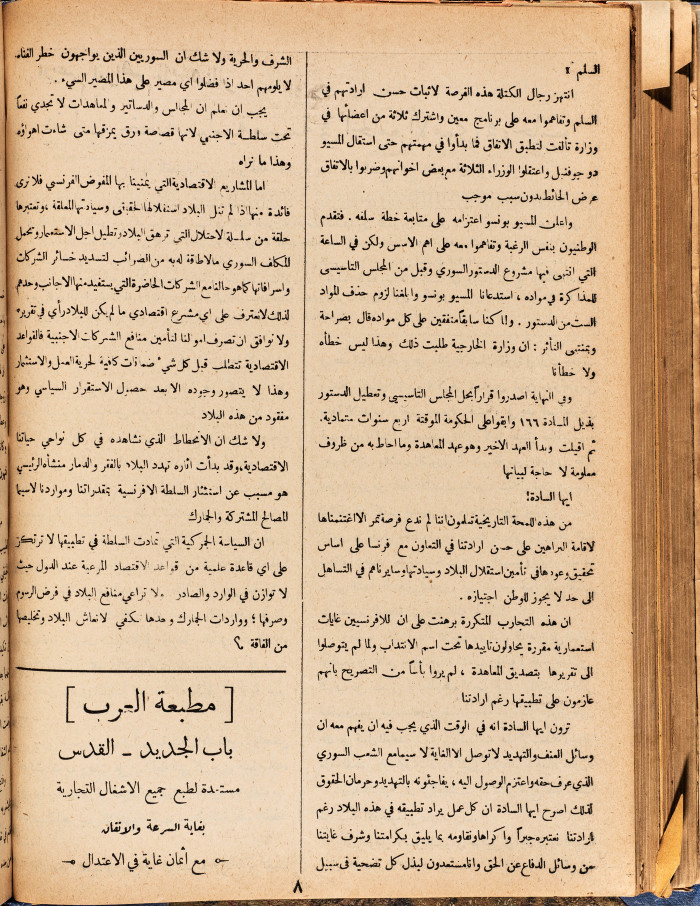 السلم ؟
انتهز رجال الكتلة هذه الفرصة لاثبات حسن ارادتهم في
السلم وتفاهموا معه على برنامج معين واشترك ثلاثة من اعضائها في
وزارة تألفت لتطبيق الاتفاق فما بدأوا في مهمتهم حتى استقال المسيو
دو جوفنيل واعتقلوا الوزراء الثلاثة مع بعض اخوانهم وضربوا بالاتفاق
عرض الحائط بدون سبب موجب
واعلن المسيو بونسو اعتزامه على متابعة خطة سلفه . فتقدم
الوطنيون بنفس الرغبة وتفاهموا معه على اهم الاسس ولكن في الساعة
التي انتهى فيها مشروع الدستور السوري وقبل من المجلس التاسيسي
للمذاكرة في مواده ، استدعانا المسيو بونسو وابلغنا لزوم حذف المواد
الست من الدستور . ولما كنا سابقاً متفقين على كل مواده قال بصراحة
وبمنتهى التأثر : ان وزارة الخارجية طلبت ذلك وهذا ليس خطأه
ولا خطأنا
وفي النهاية اصدروا قراراً بحل المجلس التاسيسي وتعطيل الدستور
بذيل المادة ١٦٦ وابقوا على الحكومة الموقتة اربع سنوات متمادية .
ثم اقيلت وبدأ العهد الاخير وهو عهد المعاهدة وما احاط به من ظروف
معلومة لا حاجة لبيانها
ايها السادة !
من هذه اللمحة التاريخية تعلمون اننا لم ندع فرصة تمر الا اغتنمناها
لاقامة البراهين على حسن ارادتنا في التعاون مع فرنسا على اساس
تحقيق وعودها في تأمين استقلال البلاد وسيادتها وسايرناهم في التساهل
الى حد لا يجوز للوطن اجتيازه .
ان هذه التجارب المتكررة برهنت على ان للافرنسيين غايات
استعمارية مقررة يحاولون تاييدها تحت اسم الانتداب ولما لم يتوصلوا
الى تقريرها بتصديق المعاهدة ، لم يروا بأساً من التصريح بانهم
عازمون على تطبيقها رغم ارادتنا
ترون ايها السادة انه في الوقت الذي يجب فيه ان يفهم معه ان
وسائل العنف والتهديد لا توصل الا لغاية لا سيما مع الشعب السوري
الذي عرف حقه واعتزم الوصول اليه ، يفاجئونه بالتهديد وحرمان الحقوق
لذلك اصرح ايها السادة ان كل عمل يراد تطبيقه في هذه البلاد رغم
ارادتنا نعتبره جبراً واكراهاً ونقاومه بما يليق بكرامتنا وشرف غايتنا
من وسائل الدفاع عن الحق واننا مستعدون لبذل كل تضحية في سبيل
الشرف والحرية ولا شك ان السوريين الذين يواجهون خطر الفناء
لا يلومهم احد اذا فضلوا اي مصير على هذا المصير السيء .
يجب ان نعلم ان المجالس والدساتير والمعاهدات لا تجدي نفعاً
تحت سلطة الاجنبي لانها قصاصة ورق يمزقها متى شاءت اهواؤه
وهذا ما نراه
اما المشاريع الاقتصادية التي يمنينا بها المفوض الفرنسي فلا نرى
فائدة منها اذا لم تنل البلاد استقلالها الحقيقي وسيادتها المطلقة ، ونعتبرها
حلقة من سلسلة الاحتلال التي ترهق البلاد بتطيل اجل الاستعمار وتحمل
المكلف السوري ما لا طاقة له به من الضرائب لتسديد خسائر الشركات
واسرافاتها كما هو حالنا مع الشركات الحاضرة التي يستفيد منها الاجانب وحدهم
لذلك لا نعترف على اي مشرع اقتصادي ما لم يكن للبلاد رأي في تقريره
ولا نوافق ان تصرف اموالنا لتأمين منافع الشركات الاجنبية فالقواعد
الاقتصادية تتطلب قبل كل شيء ضمانات كافية لحرية العمل والاستثمار
وهذا لا يتصور وجوده الا بعد حصول الاستقرار السياسي وهو
مفقود من هذه البلاد
ولا شك ان الانحطاط الذي نشاهده في كل نواحي حياتنا
الاقتصادية ، وقد بدأت اثاره تهدد البلاد بالفقر والدمار منشأه الرئيسي
هو مسبب عن استئثار السلطة الافرنسية بمقدراتنا ومواردنا لاسيما
المصالح المشتركة والجمارك
ان السياسة الجمركية التي تمادت السلطة في تطبيقها لا ترتكز
على اي قاعدة علمية من قواعد الاقتصاد المرعية عند الدول حيث
لا توازن في الوارد والصادر ولا تراعي منافع البلاد في فرض الرسوم
وصرفها ؛ وواردات الجمارك وحدها تكفي لانعاش البلاد وتخليصها
من الفاقة ؟
[ مطبعة العرب ]
باب الجديد ـ القدس
مستعدة لطبع جميع الاشغال التجارية
بغاية السرعة والاتقان
مع أثمان غاية في الاعتدال
٨